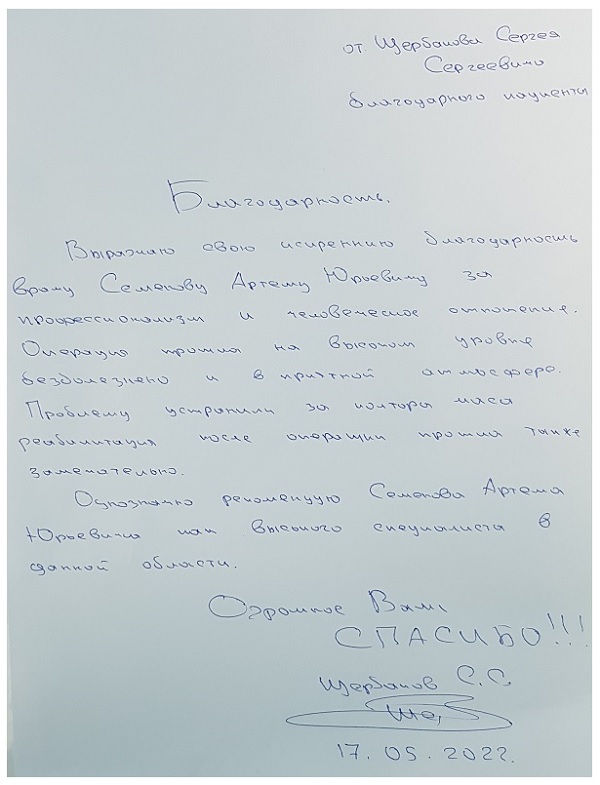 от Щербакова Сергея
Сергеевича
благодарного пациента
Благодарность.
Выражаю свою искреннию благодарность
врачу Семенову Артему Юрьевичу за
профессионализм и человеческое отношение.
Операция прошла на высоком уровне
безболезнено и в приятной атмосфере.
Проблему устранили за полторы часа
реабилитация после операции прошла также
замечательно.
Однозначно рекомендую Семенова Артема
Юрьевича как высокого специалиста в
данной области.
Огромное Вам
СПАСИБО!!!
Щербаков С.С.
17.05.2022.